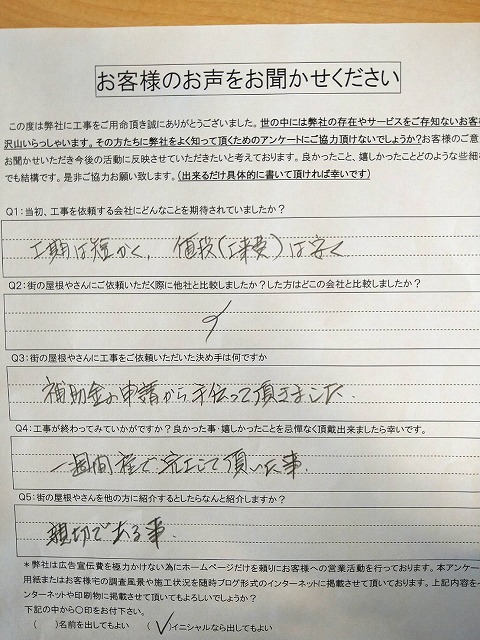 お客様のお声をお聞かせください
この度は弊社に工事をご用命頂き誠にありがとうございました。世の中には弊社の存在やサービスをご存知ないお客
沢山いらっしゃいます。その方たちに弊社をよく知って頂くためのアンケートにご協力頂けないでしょうか?お客様のご意
お聞かせいただき今後の活動に反映させていただきたいと考えております。良かったこと、嬉しかったことどのような些細
でも結構です。是非ご協力お願い致します。(出来るだけ具体的に書いて頂ければ幸いです)
Q1:当初、工事を依頼する会社にどんなことを期待されていましたか?
工期は短かく、価段(工事費)は安く
Q2:街の屋根やさんにご依頼いただく際に他社と比較しましたか?した方はどこの会社と比較しましたか?
Q3:街の屋根やさんに工事をご依頼いただいた決め手は何ですか
補助金の申請から手伝って頂きました.
Q4:工事が終わってみていかがですか?良かった事・嬉しかったことを忌憚なく頂戴出来ましたら幸いです。
一週間程で完工して頂いた事.
Q5:街の屋根やさんを他の方に紹介するとしたらなんと紹介しますか?
親切である事.
*弊社は広告宣伝費を極力かけない為にホームページだけを頼りにお客様への営業活動を行っております。本アンケー
用紙またはお客様宅の調査風景や施工状況を随時ブログ形式のインターネットに掲載させて頂いております。上記内容を
ンターネットや印刷物に掲載させて頂いてもよろしいでしょうか?
下記の中から○印をお付下さい。
( )名前を出してもよい (✓)イニシャルなら出してもよい